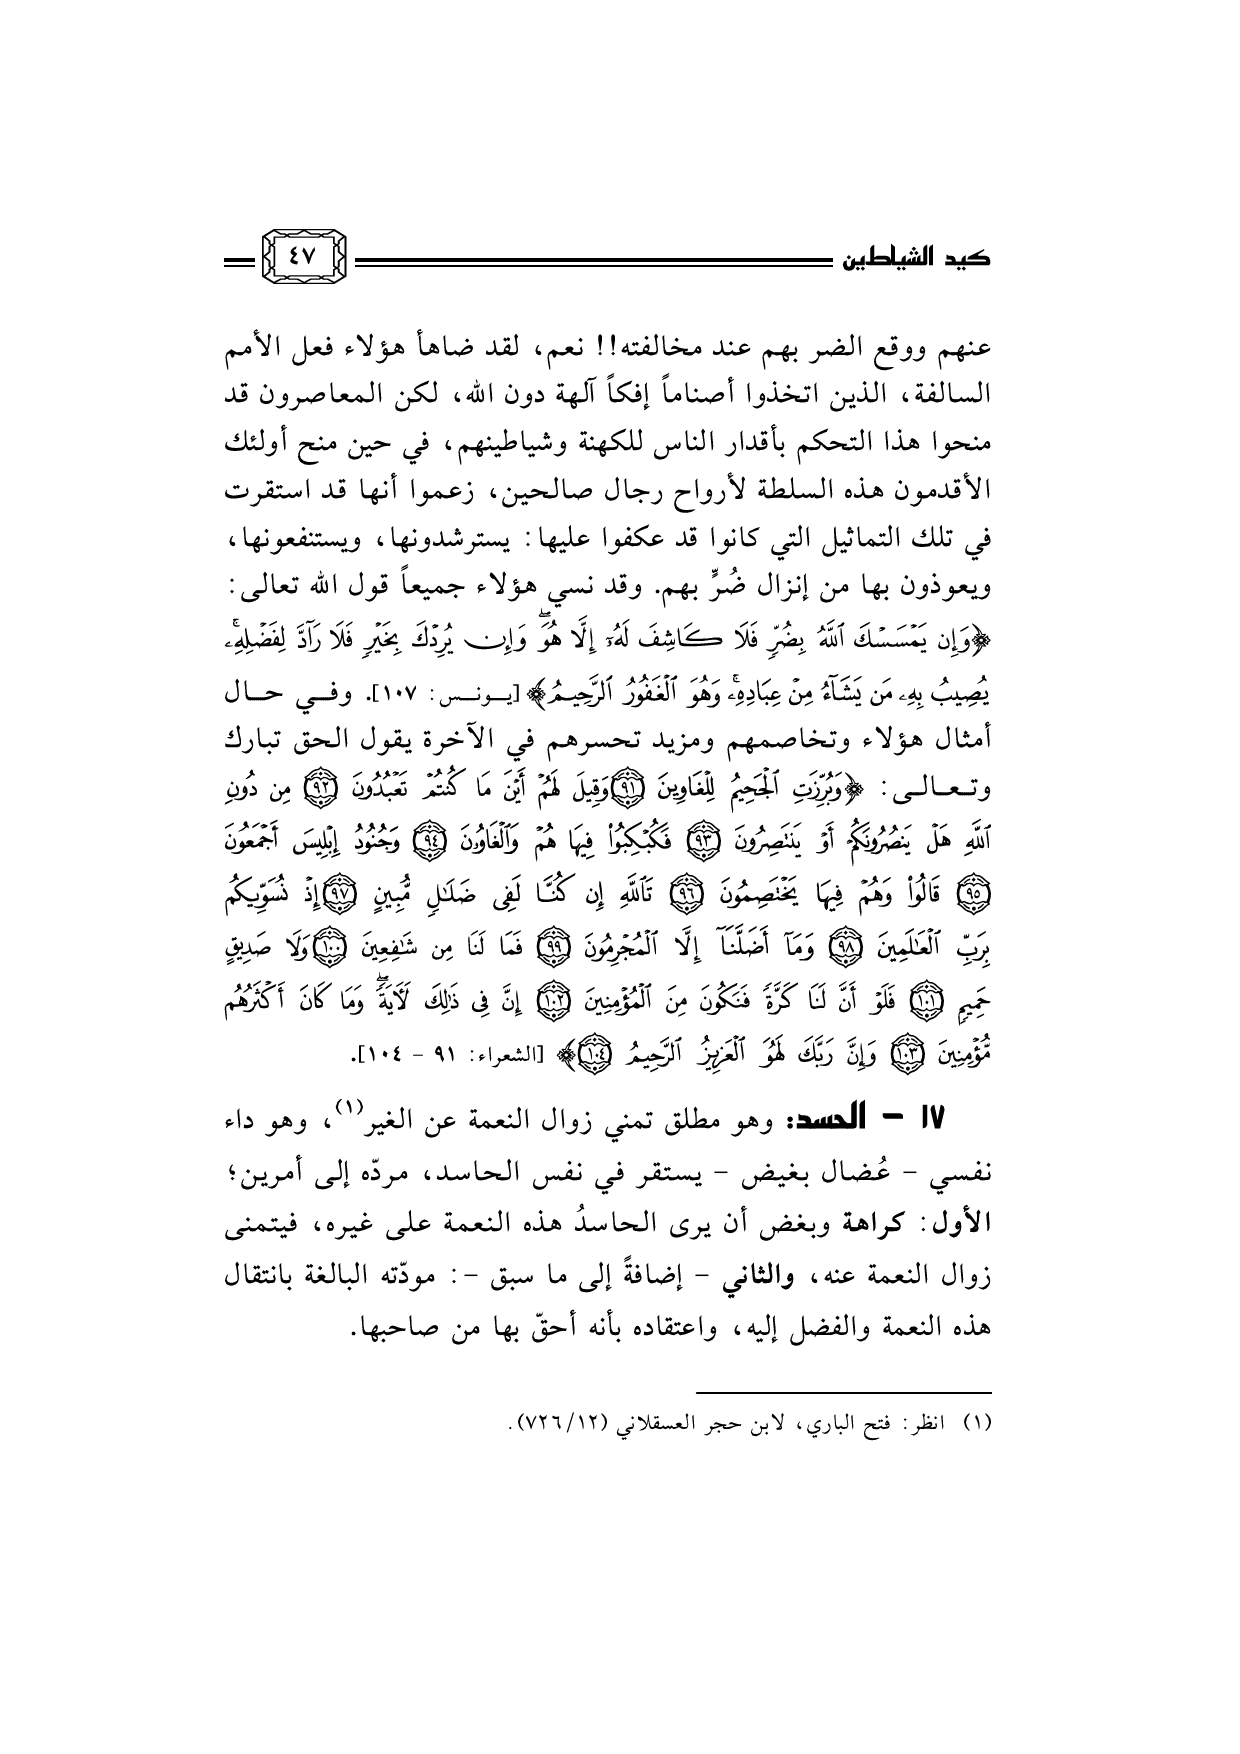 كيد الشياطين ٤٧
عنهم ووقع الضر بهم عند مخالفته!! نعم، لقد ضاهأ هؤلاء فعل الأمم
السالفة، الذين اتخذوا أصناماً إفكاً آلهة دون الله، لكن المعاصرون قد
منحوا هذا التحكم بأقدار الناس للكهنة وشياطينهم، في حين منح أولئك
الأقدمون هذه السلطة لأرواح رجال صالحين، زعموا أنها قد استقرت
في تلك التماثيل التي كانوا قد عكفوا عليها: يسترشدونها، ويستنفعونها،
ويعوذون بها من إنزال ضُرٍّ بهم. وقد نسي هؤلاء جميعاً قول الله تعالى:
﴿وَإِن يَمۡسَسۡكَ ٱللَّهُ بِضُرّٖ فَلَا كَاشِفَ لَهُۥٓ إِلَّا هُوَۖ وَإِن يُرِدۡكَ بِخَيۡرٖ فَلَا رَآدَّ لِفَضۡلِهِۦۚ
يُصِيبُ بِهِۦ مَن يَشَآءُ مِنۡ عِبَادِهِۦۚ وَهُوَ ٱلۡغَفُورُ ٱلرَّحِيمُ﴾ [يونس: ١٠٧]. وفي حال
أمثال هؤلاء وتخاصمهم ومزيد تحسرهم في الآخرة يقول الحق تبارك
وتعالى: ﴿وَبُرِّزَتِ ٱلۡجَحِيمُ لِلۡغَاوِينَ ٩١ وَقِيلَ لَهُمۡ أَيۡنَ مَا كُنتُمۡ تَعۡبُدُونَ ٩٢ مِن دُونِ
ٱللَّهِ هَلۡ يَنصُرُونَكُمۡ أَوۡ يَنتَصِرُونَ ٩٣ فَكُبۡكِبُواْ فِيهَا هُمۡ وَٱلۡغَاوُۥنَ ٩٤ وَجُنُودُ إِبۡلِيسَ أَجۡمَعُونَ
٩٥ قَالُواْ وَهُمۡ فِيهَا يَخۡتَصِمُونَ ٩٦ تَٱللَّهِ إِن كُنَّا لَفِي ضَلَٰلٖ مُّبِينٍ ٩٧ إِذۡ نُسَوِّيكُم
بِرَبِّ ٱلۡعَٰلَمِينَ ٩٨ وَمَآ أَضَلَّنَآ إِلَّا ٱلۡمُجۡرِمُونَ ٩٩ فَمَا لَنَا مِن شَٰفِعِينَ ١٠٠ وَلَا صَدِيقٍ
حَمِيمٖ ١٠١ فَلَوۡ أَنَّ لَنَا كَرَّةٗ فَنَكُونَ مِنَ ٱلۡمُؤۡمِنِينَ ١٠٢ إِنَّ فِي ذَٰلِكَ لَأٓيَةٗۖ وَمَا كَانَ أَكۡثَرُهُم
مُّؤۡمِنِينَ ١٠٣ وَإِنَّ رَبَّكَ لَهُوَ ٱلۡعَزِيزُ ٱلرَّحِيمُ ١٠٤﴾ [الشعراء: ٩١ - ١٠٤].
١٧ - الحسد: وهو مطلق تمني زوال النعمة عن الغير(١)، وهو داء
نفسي - عُضال بغيض - يستقر في نفس الحاسد، مردّه إلى أمرين؛
الأول: كراهة وبغض أن يرى الحاسدُ هذه النعمة على غيره، فيتمنى
زوال النعمة عنه، والثاني - إضافةً إلى ما سبق -: مودّته البالغة بانتقال
هذه النعمة والفضل إليه، واعتقاده بأنه أحقّ بها من صاحبها.
(١) انظر: فتح الباري، لابن حجر العسقلاني (٧٢٦/١٢).